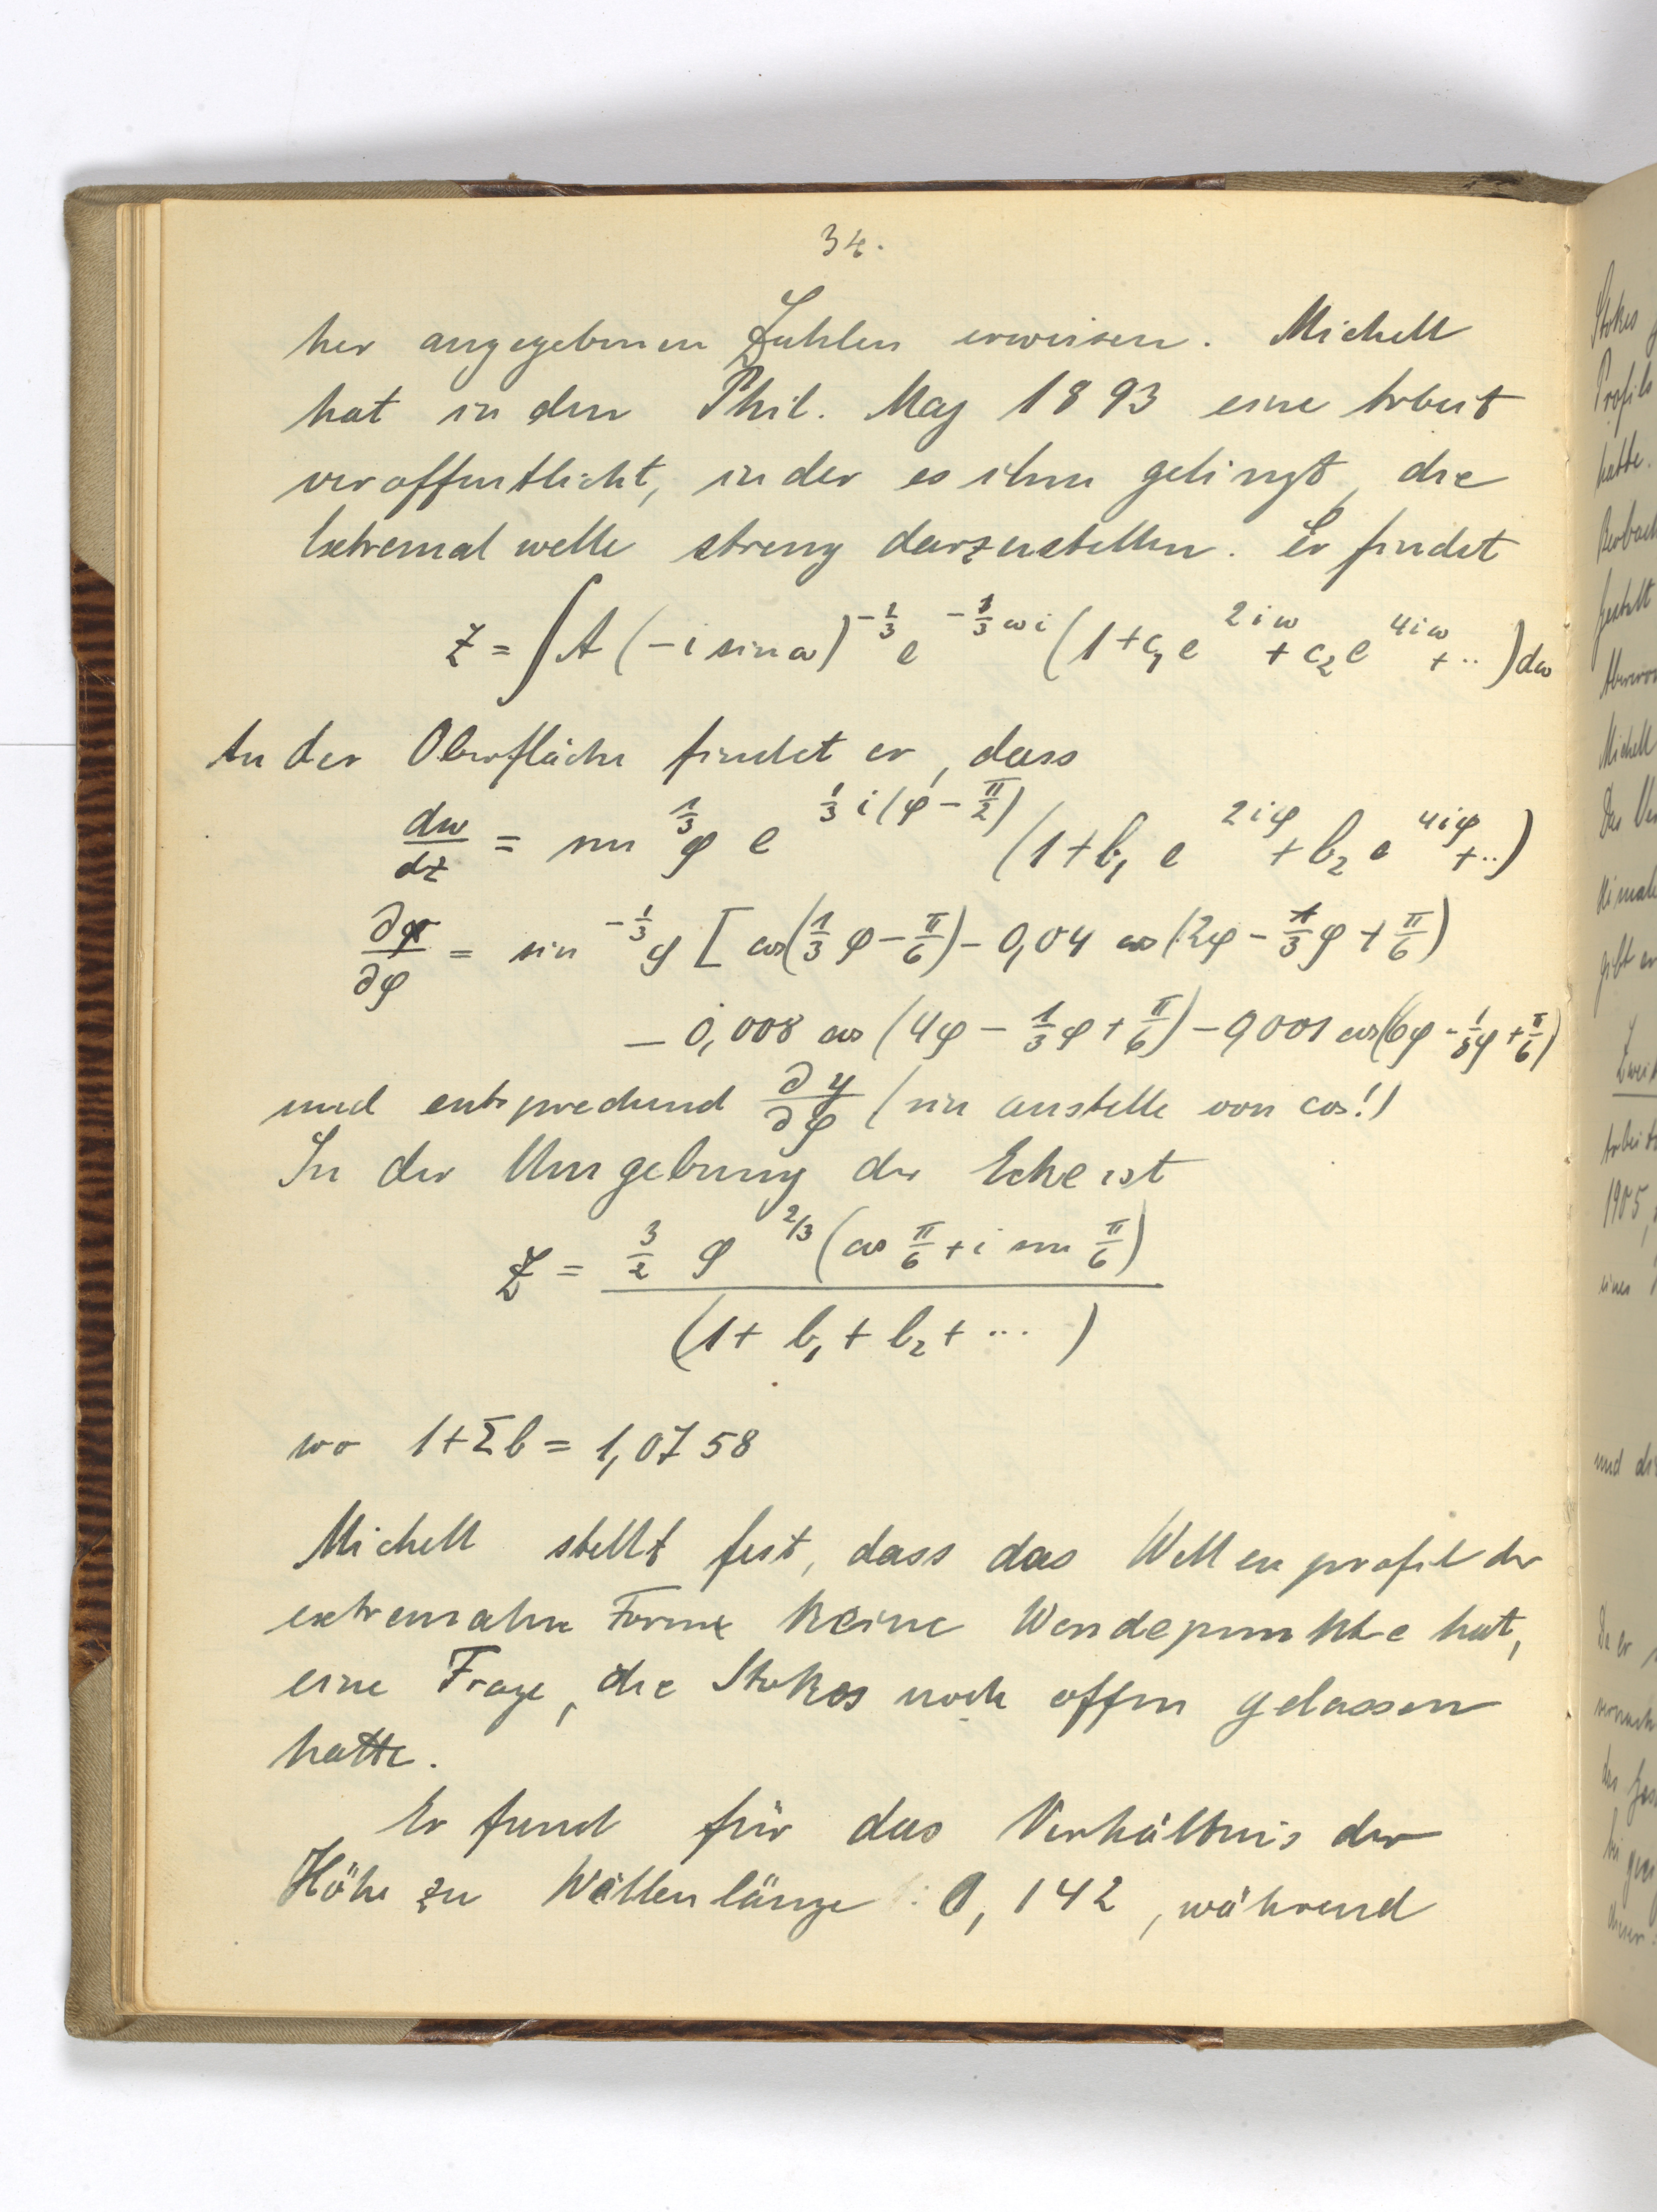 34.
her angegebenen Zahlen erweisen. Michell
hat in den Phil. Mag 1893 eine Arbeit
veroffentlicht, in der es ihm gelingt, die
Extremalwelle streng darzustellen. Er findet
z = ∫ A (-i sin ω)^{-1/3} e^{-1/3 ω i} (1 + c₁ e^{2iω} + c₂ e^{4iω} + ..) dω
An der Oberfläche findet er, dass
dw/dz = sin^{1/3} φ e^{1/3 i(φ - π/2)} (1 + b₁ e^{2iφ} + b₂ e^{4iφ} + ..)
∂x/∂φ = sin^{-1/3} φ [ cos(1/3 φ - π/6) - 0,04 cos (2φ - 1/3 φ + π/6)
- 0,008 cos (4φ - 1/3 φ + π/6) - 0,001 cos (6φ - 1/3 φ + π/6)
und entsprechend ∂y/∂φ (sin anstelle von cos!)
In der Umgebung der Ecke ist
z = 3/2 φ^{2/3} (cos π/6 + i sin π/6)
(1 + b₁ + b₂ + ... )
wo 1+Σb = 1,0758
Michell stellt fest, dass das Wellenprofil der
extremalen Form keine Wendepunkte hat,
eine Frage, die Stokes noch offen gelassen
hatte.
Er fand für das Verhältnis der
Höhe zu Wellenlänge : 0,142, während